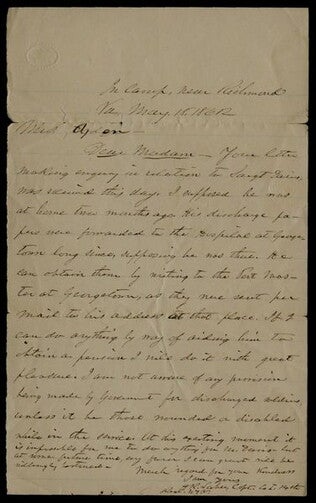 In Camp, near Richmond
Va. May, 18, 1862
Mrs Ogden
Dear Madam - Your letter
making enquiry in relation to Sergt
was received this day. I supposed he was
at home two months ago. His discharge pa-
pers were forwarded to the Hospital at George-
town long since, supposing he was there. He
can obtain them by writing to the Post Mas-
ter at Georgetown, as they were sent per
mail to his address at that place. If I
can do anything by way of aiding him to
obtain a pension I will do it with great
pleasure. I am not aware of any provision
being made by Goverment for discharged soldiers,
unless it be those wounded or disabled
while in the service. At this exciting moment it
is impossible for me to do anything for him. But
at some future time, any favor I can grant will be
Much regard for your kindness
I am yours
Capt. Co.